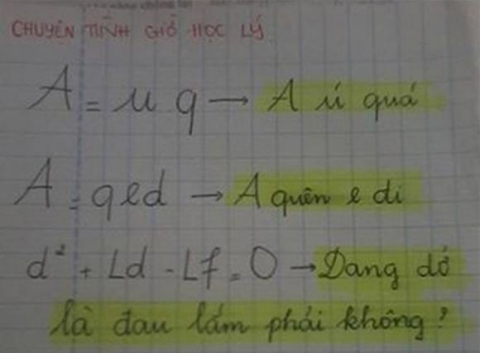 CHUYỆN TÌNH GIỜ HỌC LÝ
A = u q → A ú quá
A = qed → A quên e di
d² + Ld - Lf = 0 → Dang dở
là đau lắm phải không?